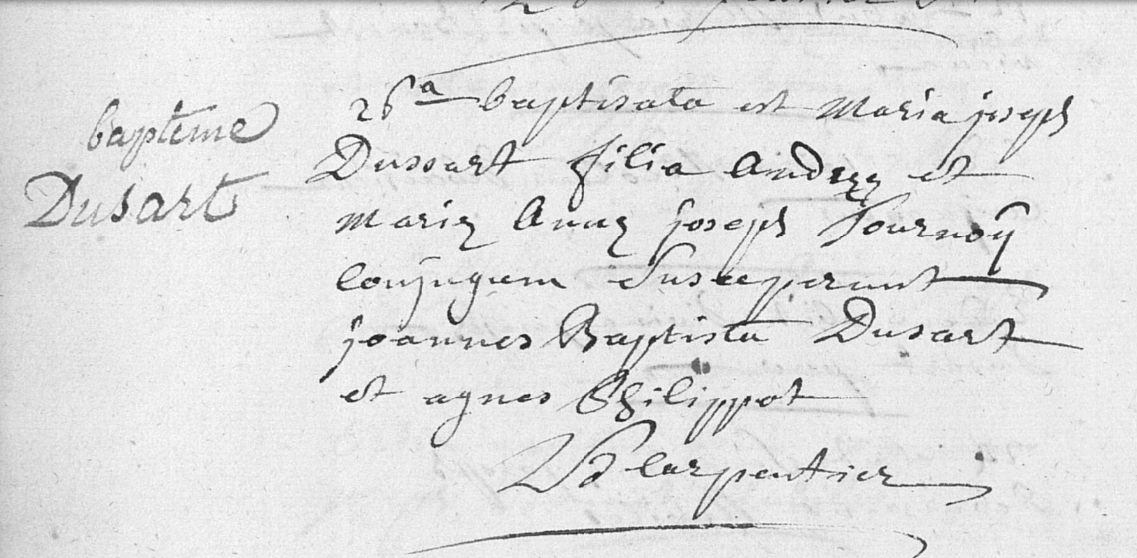 bapteme
Dusart
26a baptisata est Maria joseph
Dussart filia Andreæ et
Mariæ Annæ joseph Fournoÿ
conjugum Susceperunt
joannes Baptista Dusart
et agnes Philippot
Carpentier